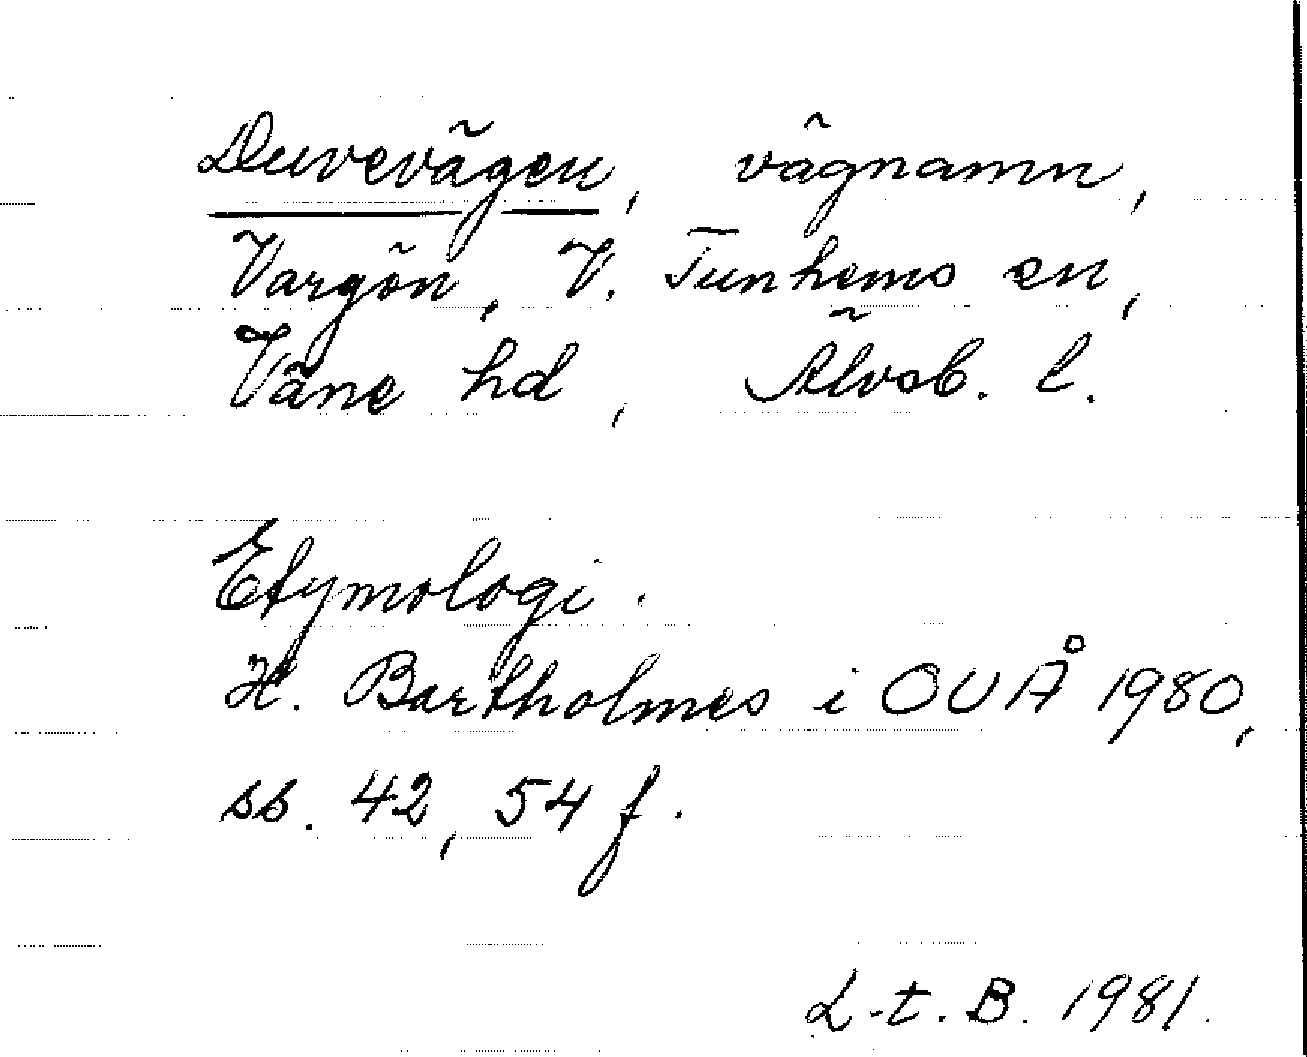 Duvevägen, vägnamn,
Vargön, V. Tunhems sn,
Väne hd, Älvsb. l.
Etymologi.
H. Bartholmes i OUÅ 1980,
ss. 42, 54 f.
L-t. B. 1981.